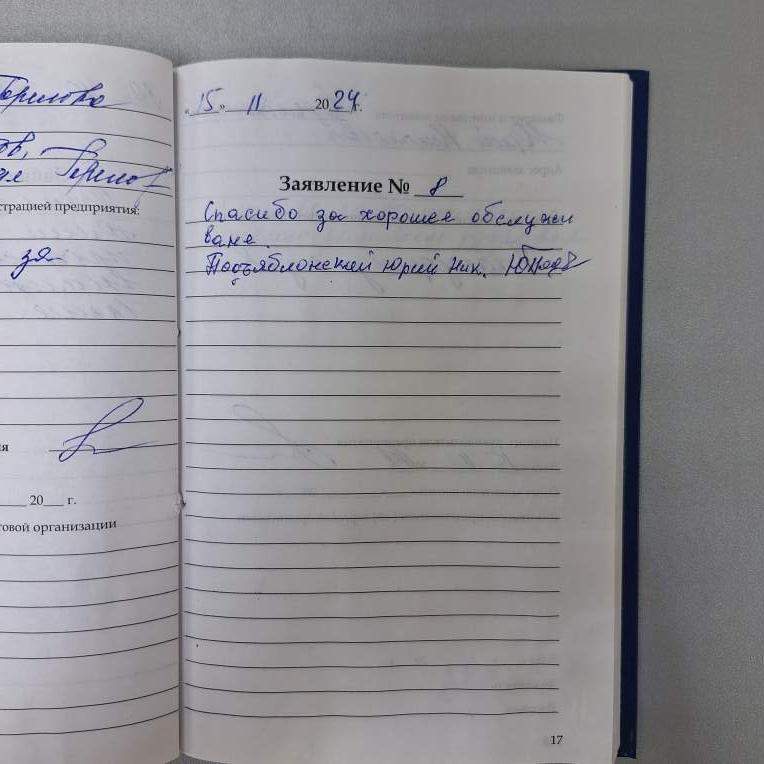 Горелова
ов,
Горелов
страцией предприятия:
за
я
20 г.
товой организации
«15» 11 2024 г.
Заявление № 8
Спасибо за хорошее обслужи
ване.
Подъяблонский Юрий Ник.
17